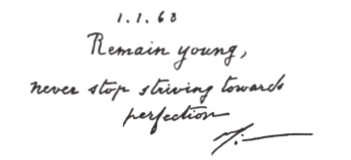 1.1.68
Remain young,
never stop striving towards
perfection